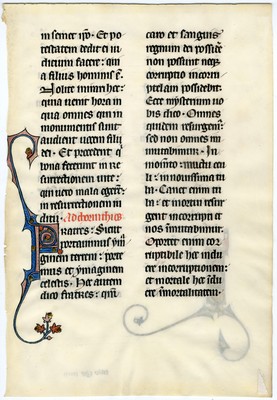 in semet ipso. Et po
testatem dedit ei iu
dicium facere: qui
a filius hominis est.
Nolite mirari hec:
quia uenit hora in
qua omnes qui in
monumentis sunt
audient uocem filii
dei. Et procedent qui
bona fecerunt in re
surrectionem uite:
qui uero mala egerunt:
in resurrectionem iu
dicii. Ad corinthios.
Fratres: Sicut
portauimus yma
ginem terreni: porte
mus et ymaginem
celestis. Hoc autem
dico fratres: quia
caro et sanguis
regnum dei possidere
non possunt neque
corruptio incorru
ptelam possidebit.
Ecce mysterium uo
bis dico. Omnes
quidem resurgemus:
sed non omnes im
mutabimur. In
momento: in ictu ocu
li: in nouissima tu
ba: Canet enim tu
ba: et mortui resur
gent incorrupti et
nos inmutabimur.
Oportet enim cor
ruptibile hoc indu
ere incorruptionem:
et mortale hoc indu
ere immortalitatem.